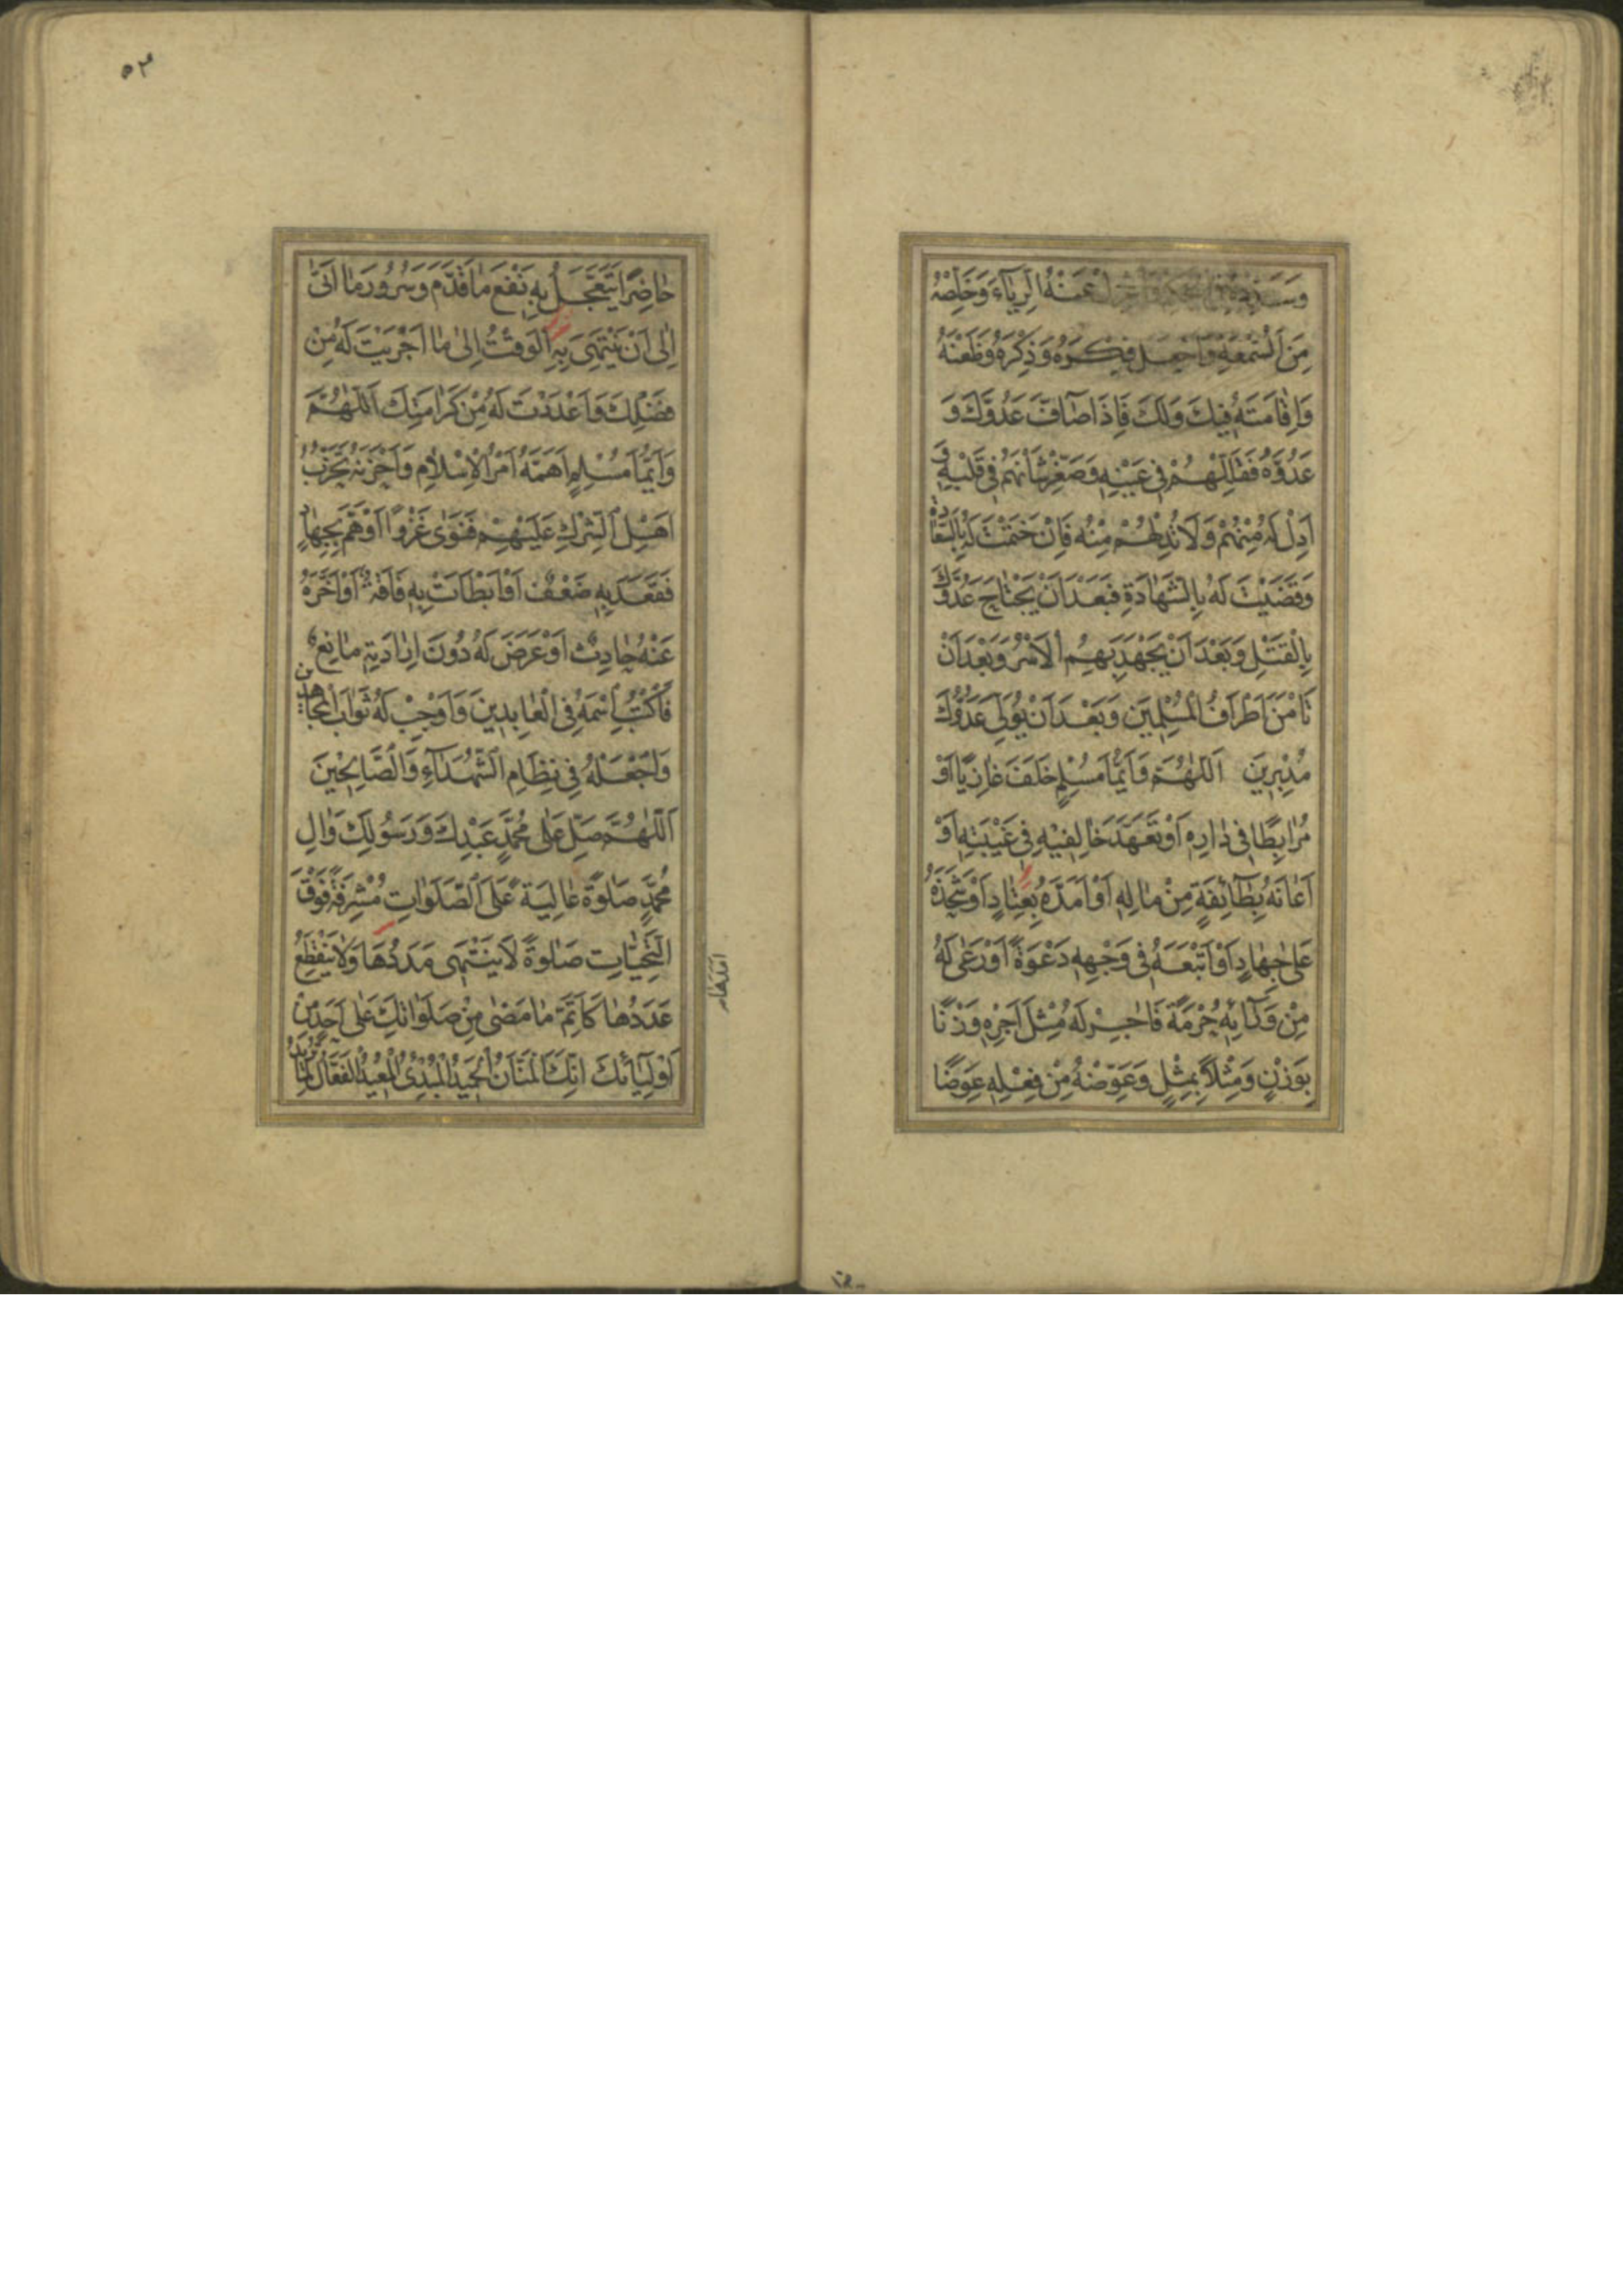 وَسَدِّدْهُ فِي الْحُكْمِ وَاعْزِلْ عَنْهُ الرِّيَاءَ وَخَلِّصْهُ
مِنَ السُّمْعَةِ وَاجْعَلْ فِكْرَهُ وَذِكْرَهُ وَظَعْنَهُ
وَاِقَامَتَهُ فِيكَ وَلَكَ فَاِذَا صَافَّ عَدُوَّكَ وَ
عَدُوَّهُ فَقَلِّلْهُمْ فِي عَيْنِهِ وَصَغِّرْ شَاْنَهُمْ فِي قَلْبِهِ وَ
اَدِلْ لَهُ مِنْهُمْ وَلَا تُدِلْهُمْ مِنْهُ فَاِنْ خَتَمْتَ لَهُ بِالسَّعَادَةِ
وَقَضَيْتَ لَهُ بِالشَّهَادَةِ فَبَعْدَ اَنْ يَجْتَاحَ عَدُوَّكَ
بِالْقَتْلِ وَبَعْدَ اَنْ يَجْهَدَ بِهِمُ الْاَسْرُ وَبَعْدَ اَنْ
تَاْمَنَ اَطْرَافُ الْمُسْلِمِينَ وَبَعْدَ اَنْ يُوَلِّيَ عَدُوُّكَ
مُدْبِرِينَ اَللّٰهُمَّ وَاَيُّمَا مُسْلِمٍ خَلَفَ غَازِيًا اَوْ
مُرَابِطًا فِي دَارِهِ اَوْ تَعَهَّدَ خَالِفِيهِ فِي غَيْبَتِهِ اَوْ
اَعَانَهُ بِطَائِفَةٍ مِنْ مَالِهِ اَوْ اَمَدَّهُ بِعِتَادٍ اَوْ شَحَذَهُ
عَلَى جِهَادٍ اَوْ اَتْبَعَهُ فِي وَجْهِهِ دَعْوَةً اَوْ رَعَى لَهُ
مِنْ وَرَائِهِ حُرْمَةً فَاٰجِرْ لَهُ مِثْلَ اَجْرِهِ وَزْنًا
بِوَزْنٍ وَمِثْلًا بِمِثْلٍ وَعَوِّضْهُ مِنْ فِعْلِهِ عِوَضًا
٥٣
حَاضِرًا يَتَعَجَّلُ بِهِ نَفْعَ مَا قَدَّمَ وَسُرُورَ مَا اَتَى
اِلَى اَنْ يَنْتَهِيَ بِهِ الْوَقْتُ اِلَى مَا اَجْرَيْتَ لَهُ مِنْ
فَضْلِكَ وَاَعْدَدْتَ لَهُ مِنْ كَرَامَتِكَ اَللّٰهُمَّ
وَاَيُّمَا مُسْلِمٍ اَهَمَّهُ اَمْرُ الْاِسْلَامِ وَاَحْزَنَهُ تَحَزُّبُ
اَهْلِ الشِّرْكِ عَلَيْهِمْ فَنَوَى غَزْوًا اَوْ هَمَّ بِجِهَادٍ
فَقَعَدَ بِهِ ضَعْفٌ اَوْ اَبْطَاَتْ بِهِ فَاقَةٌ اَوْ اَخَّرَهُ
عَنْهُ حَادِثٌ اَوْ عَرَضَ لَهُ دُونَ اِرَادَتِهِ مَانِعٌ
فَاكْتُبِ اسْمَهُ فِي الْعَابِدِينَ وَاَوْجِبْ لَهُ ثَوَابَ الْمُجَاهِدِينَ
وَاجْعَلْهُ فِي نِظَامِ الشُّهَدَاءِ وَالصَّالِحِينَ
اَللّٰهُمَّ صَلِّ عَلَى مُحَمَّدٍ عَبْدِكَ وَرَسُولِكَ وَاٰلِ
مُحَمَّدٍ صَلٰوةً عَالِيَةً عَلَى الصَّلَوَاتِ مُشْرِفَةً فَوْقَ
التَّحِيَّاتِ صَلٰوةً لَا يَنْتَهِي مَدَدُهَا وَلَا يَنْقَطِعُ
عَدَدُهَا كَاَتَمِّ مَا مَضَى مِنْ صَلَوَاتِكَ عَلَى اَحَدٍ مِنْ
اَوْلِيَائِكَ اِنَّكَ الْمَنَّانُ الْحَمِيدُ الْمُبْدِئُ الْمُعِيدُ الْفَعَّالُ لِمَا تُرِيدُ